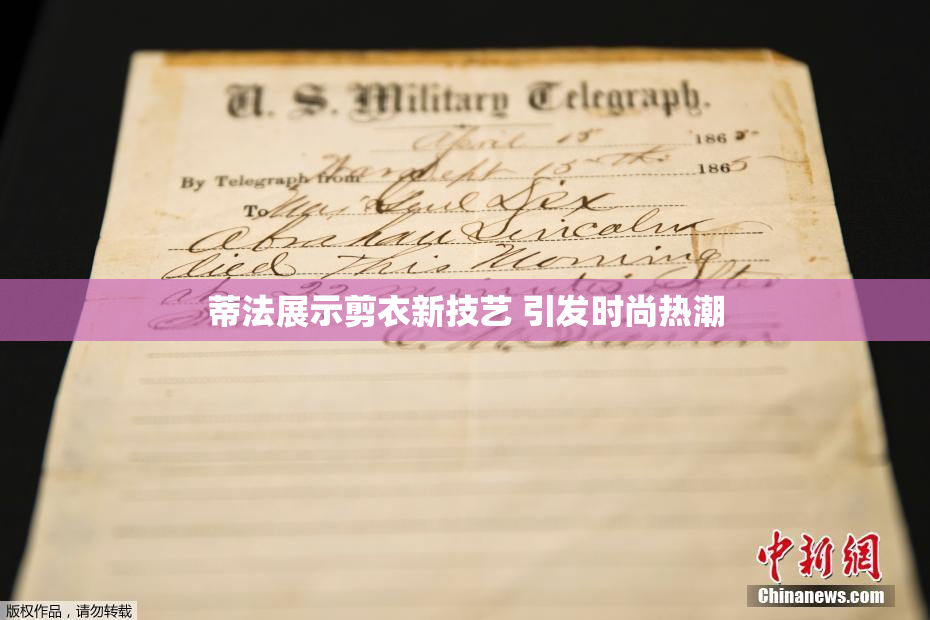 U. S. Military Telegraph.
April 15 1865
By Telegraph from War Dept 15th 1865
To Maj Genl Dix
Abraham Lincoln
died This Morning
at 22 minutes after
蒂法展示剪衣新技艺 引发时尚热潮
E. M. Stanton
中新网
Chinanews.com
版权作品，请勿转载